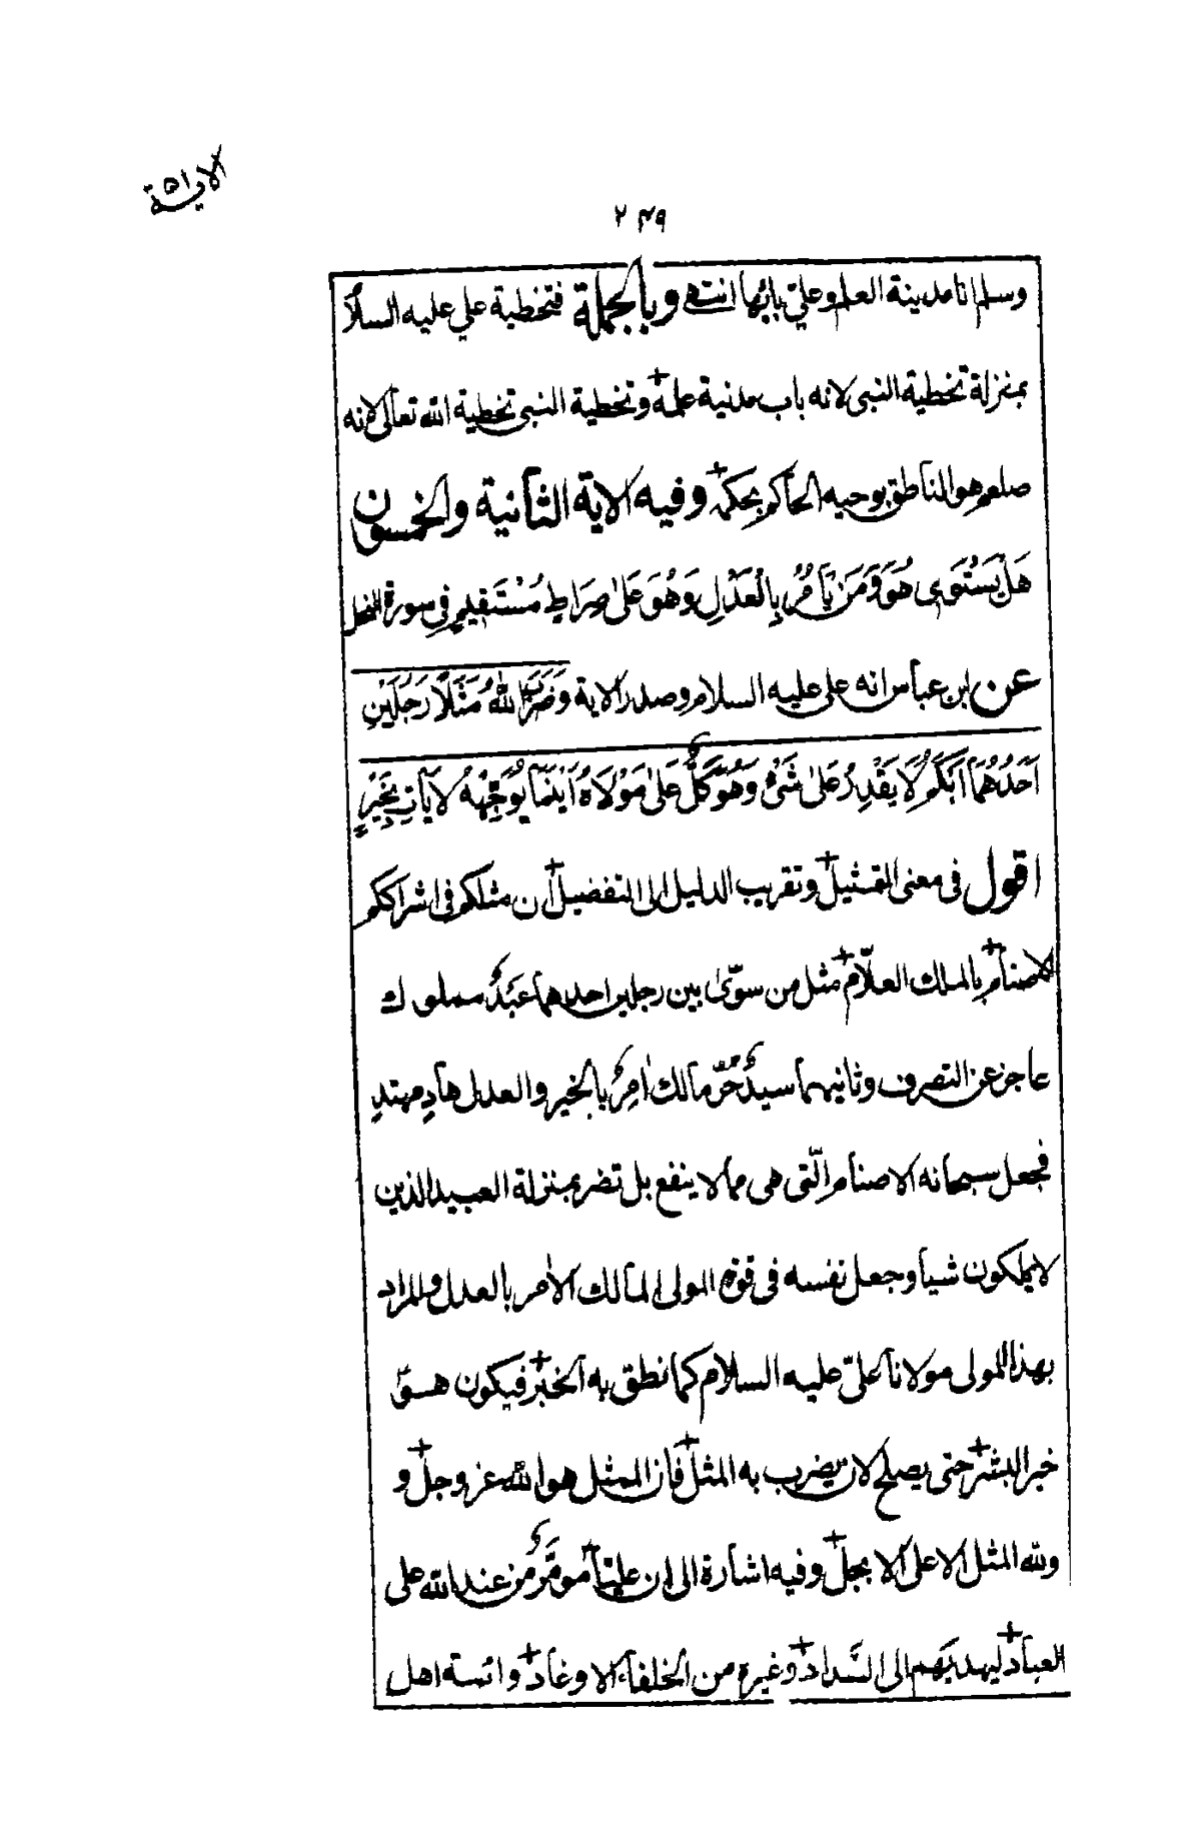 الاية ٥١
٢٤٩
وسلم انا مدينة العلم وعليّ بابها انتهى وبالجملة فتخطية علي عليه السلا
بمنزلة تخطية النبى لانه باب مدنية علمه وتخطية النبى تخطية الله تعالى لانه
صلعم هو الناطق بوحيه الحاكم بحكمه وفيه الاية الثانية والخمسون
هَلْ يَسْتَوِى هُوَ وَمَنْ يَأْمُرُ بِالْعَدْلِ وَهُوَ عَلٰى صِرَاطٍ مُسْتَقِيمٍ فى سورة النحل
عن ابن عباس انه على عليه السلام وصدر الاية وَضَرَبَ اللهُ مَثَلًا رَجُلَيْنِ
اَحَدُهُمَا اَبْكَمُ لَا يَقْدِرُ عَلىٰ شَىْءٍ وَهُوَ كَلٌّ عَلىٰ مَوْلَاهُ اَيْنَمَا يُوَجِّهْهُ لَا يَأْتِ بِخَيْرٍ
اقول فى معنى التمثيل وتقريب الدليل الى التفضيل ان مثلكم فى اشراككم
الاصنام بالملك العلّام مثل من سوّىٰ بين رجلين احدهما عَبْدٌ مملوك
عاجز عن التصرف وثانيهما سيدٌ حُرٌّ مالك اٰمِرٌ بالخير والعدل هادٍ مهتدٍ
فجعل سبحانه الاصنام الّتى هى مما لا ينفع بل تضر بمنزلة العبيد الذين
لا يملكون شيأ وجعل نفسه فى قوة المولى المالك الاٰمر بالعدل والمراد
بهذا المولى مولانا علىّ عليه السلام كما نطق به الخبر فيكون هو
خير البشر حتى يصلح لان يضرب به المثل فان الممثل هو الله عز وجل و
ولله المثل الاعلى الاجل وفيه اشارة الى ان عليّا مُوَمَّرٌ من عند الله على
العباد ليهديَهم الى السَّداد وغيره من الخلفاء الاوغاد وائمة اهل